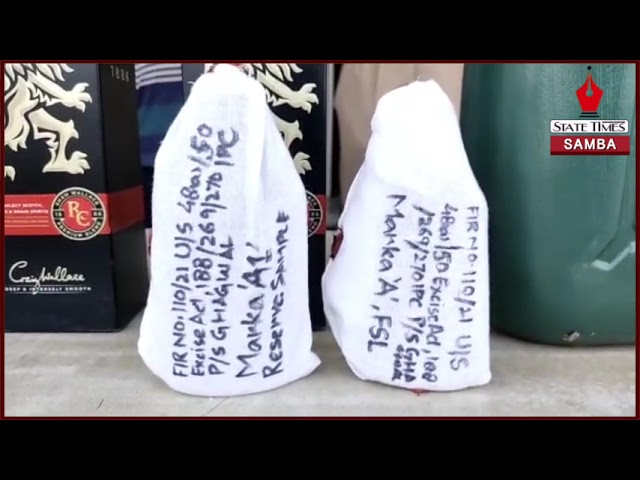 1886
RC
SCOTCH
CRAIG WALLACE
RC
PREMIUM BLEND
Craig Wallace
DEEP & INTENSELY SMOOTH
FIR NO: 110/21 U/S 48(a)/50
Excise Act, 188/269/270 IPC
P/S GHAGWAL
Marka 'A1'
RESERVE SAMPLE
FIR NO: 110/21 U/S
48(a)/50 Excise Act, 188
/269/270 IPC P/S GHA
Marka 'A', FSL
STATE TIMES
SAMBA